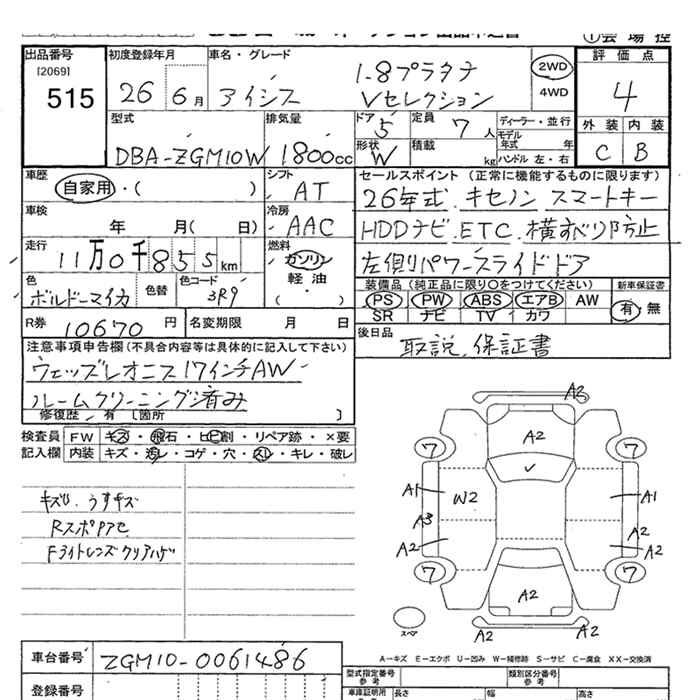 出品番号
[2069]
515
初度登録年月
26年 6月
車名・グレード
アイシス
1.8プラタナ
Vセレクション
2WD
4WD
評価点
4
外装 内装
C B
型式
DBA-ZGM10W
排気量
1800cc
ドア 5
定員 7人
形状 W
積載 kg
ディーラー・並行
モデル年式 年
ハンドル 左・右
車歴
自家用・( )
シフト
AT
車検
年 月( 日)
冷房
AAC
走行
11万0千855km
燃料
ガソリン
軽油
( )
色
ボルドーマイカ
色替
色コード
3R9
R券 10670円
名変期限 月 日
セールスポイント (正常に機能するものに限ります)
26年式.キセノン スマートキー
HDDナビ.ETC.横すべり防止
左側パワースライドドア
装備品(純正品に限り○をつけてください)
PS PW ABS エアB AW
SR ナビ TV カワ
新車保証書
有・無
後日品
取説.保証書
注意事項申告欄(不具合内容等は具体的に記入して下さい)
ウェッズレオニス17インチAW
ルームクリーニング済み
修復歴 有 [箇所 ]
検査員 FW キズ・飛石・ヒビ割・リペア跡・×要
記入欄 内装 キズ・汚レ・コゲ・穴・スレ・キレ・破レ
キズU.うすキズ
Rスポアセ
Fライトレンズクリアハゲ
A3
A2
7 7
A1 W2 A1
A3
A2 A2
A2
7 7
A2
A2 A2
スペア
A-キズ E-エクボ U-凹み W-補修跡 S-サビ C-腐食 XX-交換済
車台番号 ZGM10-0061486
登録番号
型式指定番号
参考
類別区分番号
参考
車庫証明用
長さ 幅 高さ